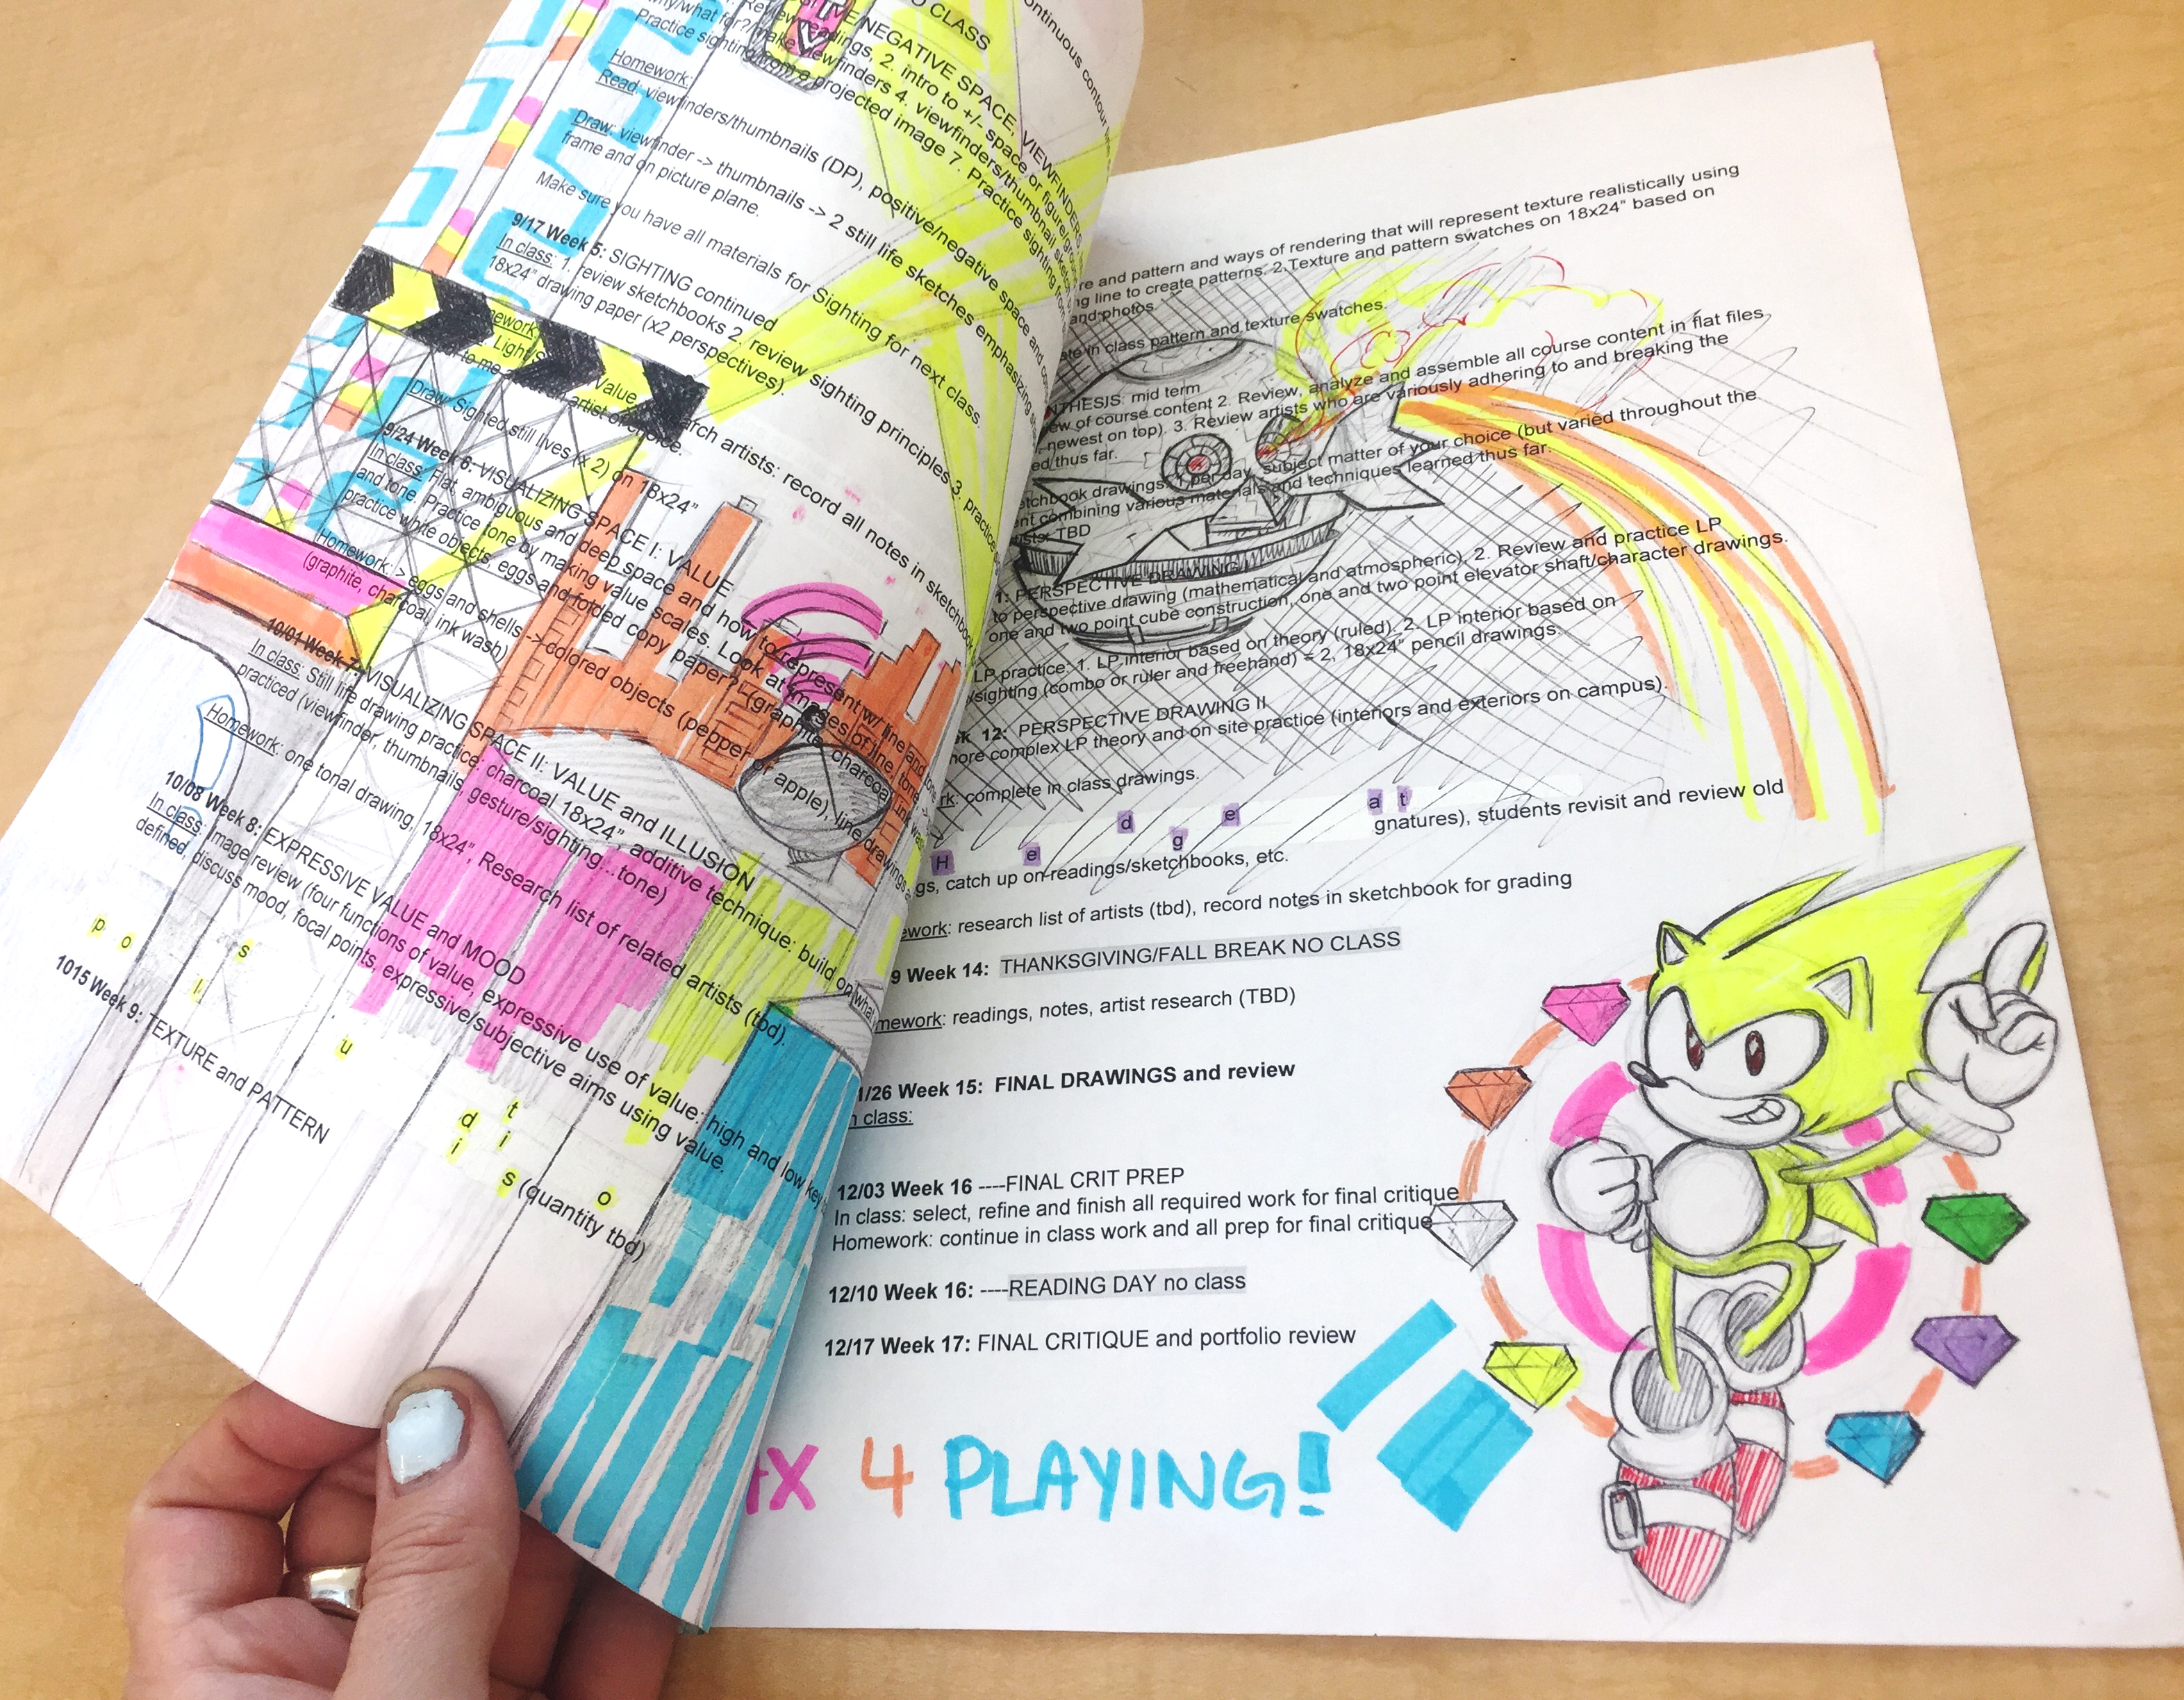 O CLASS
VE/NEGATIVE SPACE, VIEWFINDERS
Review readings, 2. intro to +/- space or figure/ground
why/what for?/make viewfinders 4. viewfinders/thumbnail sketches
Practice sighting from a projected image 7. Practice sighting from
Homework:
Read: viewfinders/thumbnails (DP), positive/negative space and
Draw: viewfinder -> thumbnails -> 2 still life sketches emphasizing
frame and on picture plane.
Make sure you have all materials for Sighting for next class.
9/17 Week 5: SIGHTING continued
In class: 1. review sketchbooks 2. review sighting principles 3. practice
18x24" drawing paper (x2 perspectives).
ework
Light/S Value
artist of choice. rch artists: record all notes in sketchbook
Draw: Sighted still lives (x 2) on 18x24"
9/24 Week 6: VISUALIZING SPACE I: VALUE
In class: Flat, ambiguous and deep space and how to represent w/ line and
and tone. Practice tone by making value scales. Look at images of line, tone
practice white objects, eggs and folded copy paper? (graphite, charcoal, ink wash)
Homework: > eggs and shells -> colored objects (pepper or apple), line drawings
(graphite, charcoal, ink wash)
10/01 Week 7: VISUALIZING SPACE II: VALUE and ILLUSION
In class: Still life drawing practice: charcoal 18x24", additive technique: build on what
practiced (viewfinder, thumbnails, gesture/sighting...tone)
Homework: one tonal drawing, 18x24", Research list of related artists (tbd).
10/08 Week 8: EXPRESSIVE VALUE and MOOD
In class: Image review (four functions of value, expressive use of value: high and low key
defined, discuss mood, focal points, expressive/subjective aims using value.
p o l s u t d i i s o (quantity tbd)
1015 Week 9: TEXTURE and PATTERN
ontinuous contour
re and pattern and ways of rendering that will represent texture realistically using
ng line to create patterns. 2.Texture and pattern swatches on 18x24" based on
and photos.
in class pattern and texture swatches.
NTHESIS: mid term
ew of course content 2. Review, analyze and assemble all course content in flat files,
newest on top). 3. Review artists who are variously adhering to and breaking the
ed thus far.
etchbook drawings: 1 per day, subject matter of your choice (but varied throughout the
ent combining various materials and techniques learned thus far.
ists: TBD
1: PERSPECTIVE DRAWING I
to perspective drawing (mathematical and atmospheric). 2. Review and practice LP
one and two point cube construction, one and two point elevator shaft/character drawings.
LP practice: 1. LP interior based on theory (ruled). 2. LP interior based on
sighting (combo or ruler and freehand) = 2, 18x24" pencil drawings.
k 12: PERSPECTIVE DRAWING II
ore complex LP theory and on site practice (interiors and exteriors on campus).
rk: complete in class drawings.
H e d g e a t gnatures), students revisit and review old
gs, catch up on readings/sketchbooks, etc.
ework: research list of artists (tbd), record notes in sketchbook for grading
9 Week 14: THANKSGIVING/FALL BREAK NO CLASS
mework: readings, notes, artist research (TBD)
1/26 Week 15: FINAL DRAWINGS and review
n class:
12/03 Week 16 ----FINAL CRIT PREP
In class: select, refine and finish all required work for final critique
Homework: continue in class work and all prep for final critique
12/10 Week 16: ----READING DAY no class
12/17 Week 17: FINAL CRITIQUE and portfolio review
X 4 PLAYING!